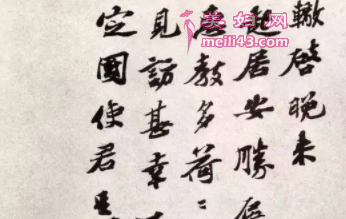 美妇网
meili43.com
轍啓晚来
起居安勝
教多荷〻
見訪甚幸
定國使君